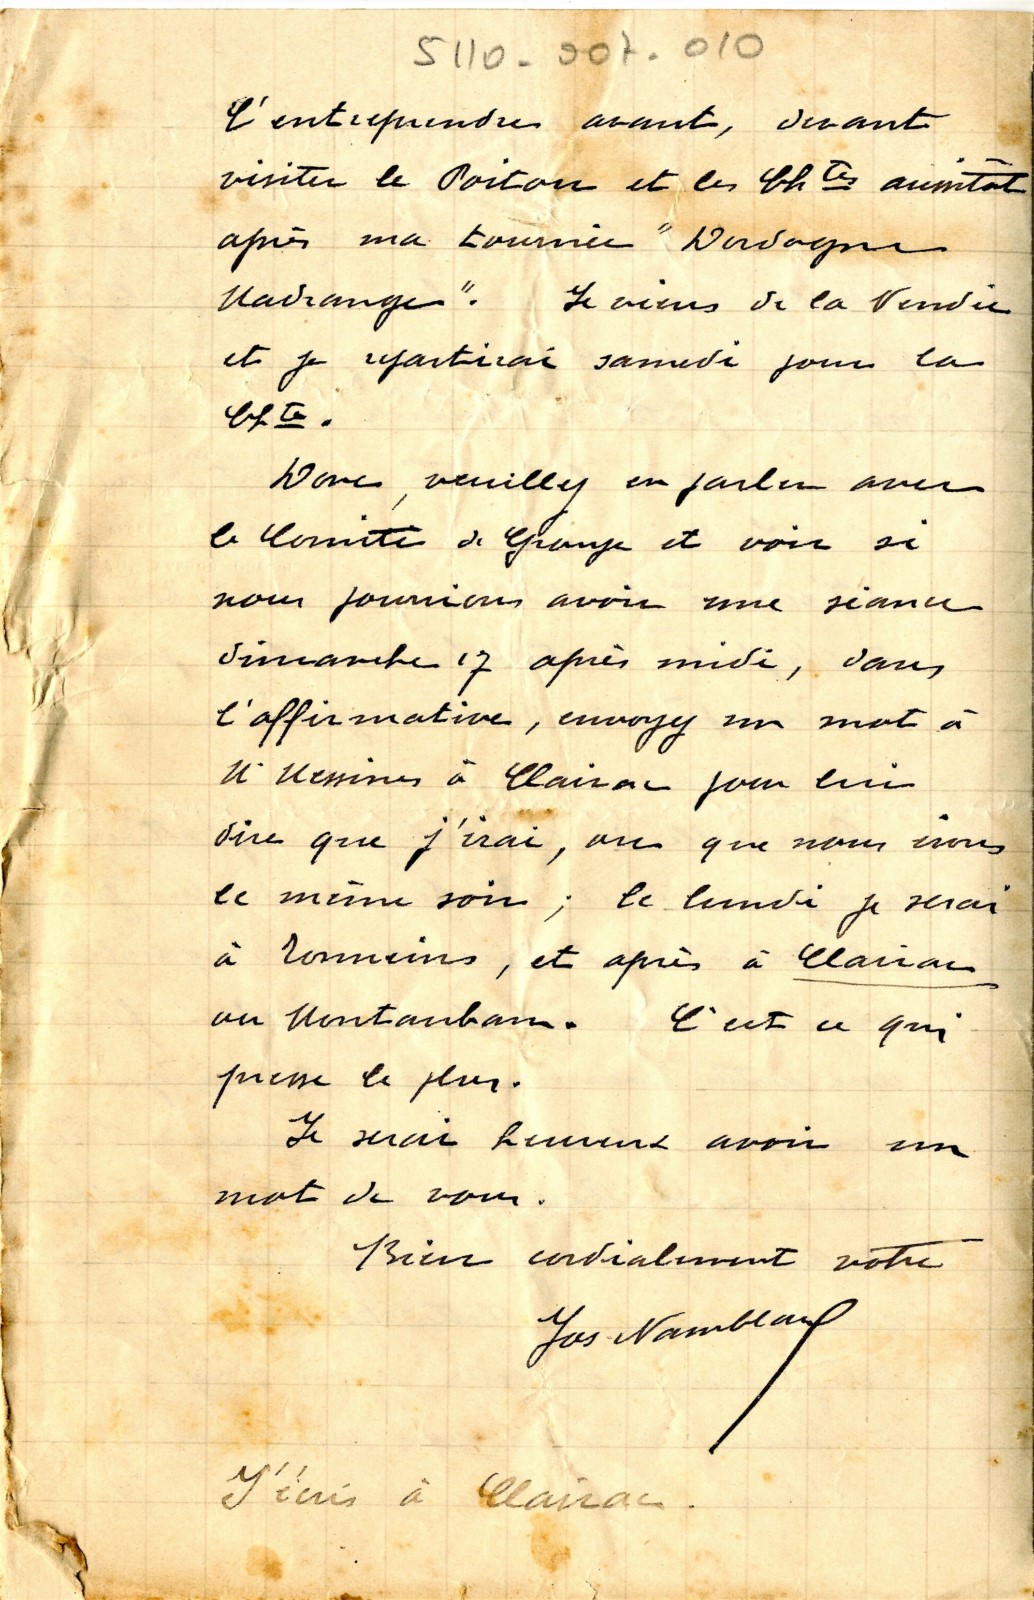 5110-907-010
l'entreprendre avant, devant
visiter le Poitou et les Ch tes aussitôt
après ma tournée "Dordogne
Madranges". Je viens de la Vendée
et je repartirai samedi pour la
Ch te.
Donc, veuillez en parler avec
le Comité de Grange et voir si
nous pourrions avoir une séance
dimanche 17 après midi, dans
l'affirmative, envoyez un mot à
Mr Messines à Clairac pour lui
dire que j'irai, ou que nous irons
le même soir ; le lundi je serai
à Tonneins, et après à Clairac
ou Montauban. C'est ce qui
presse le plus.
Je serai heureux avoir un
mot de vous.
Bien cordialement votre
Jos Namblard
J'écris à Clairac.